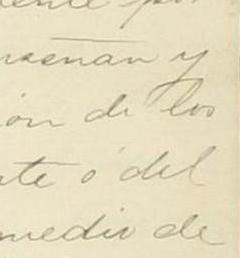 ente por
nseñan y
ón de los
nte ó del
medio de